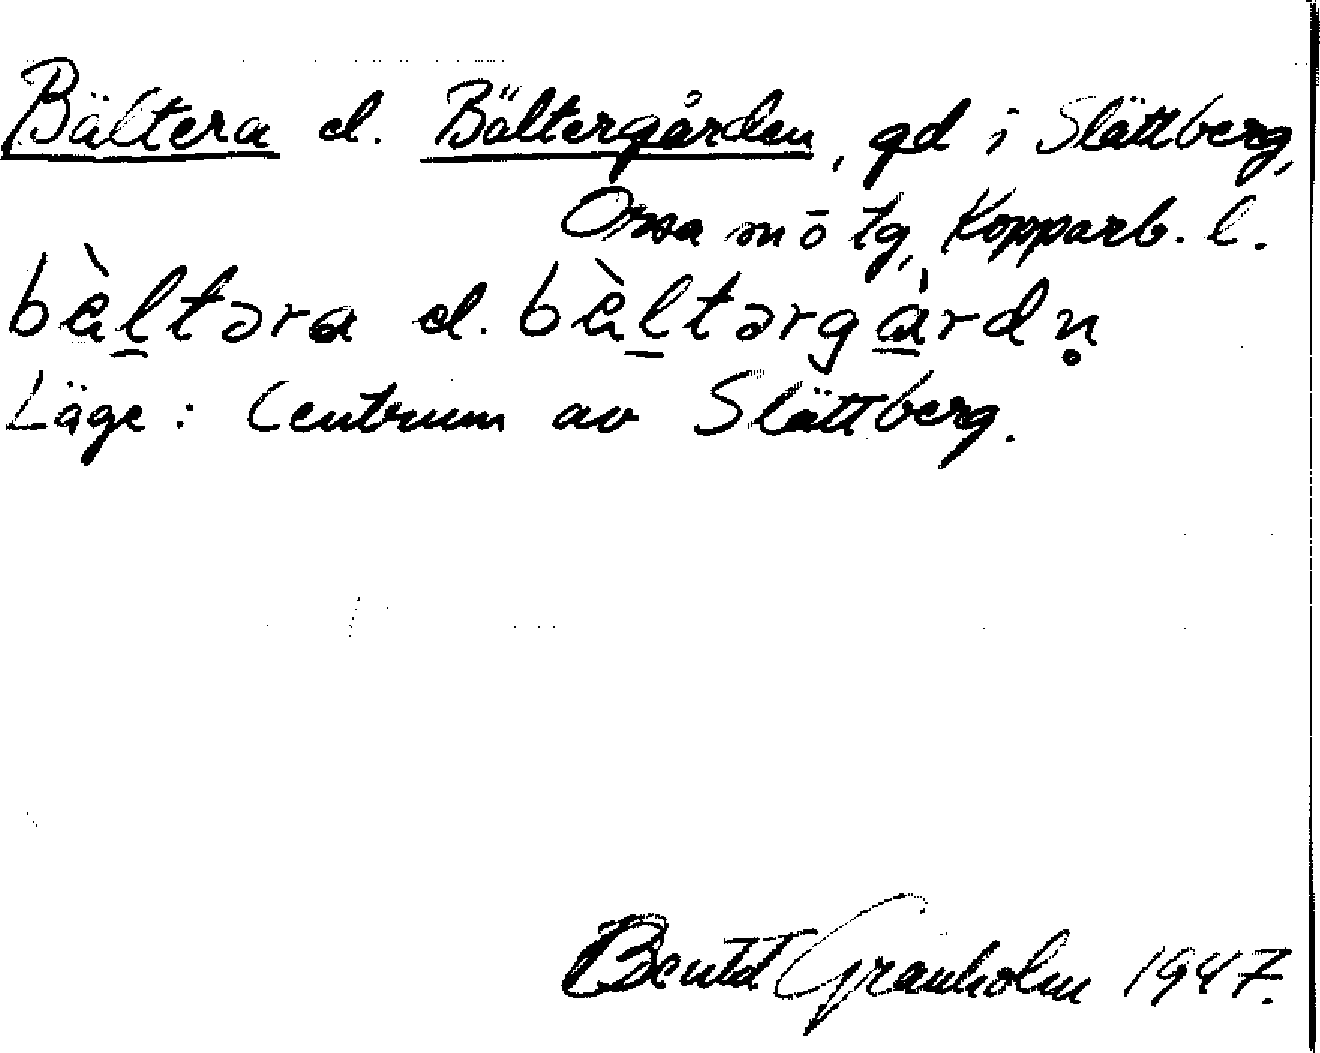 Bältera el. Bältergården, gd i Slättberg,
Orsa sn ö tg, Kopparb. l.
bὲl̠təra el. bὲl̠tərgàrdn̥
Läge: Centrum av Slättberg.
Granholm 1947.